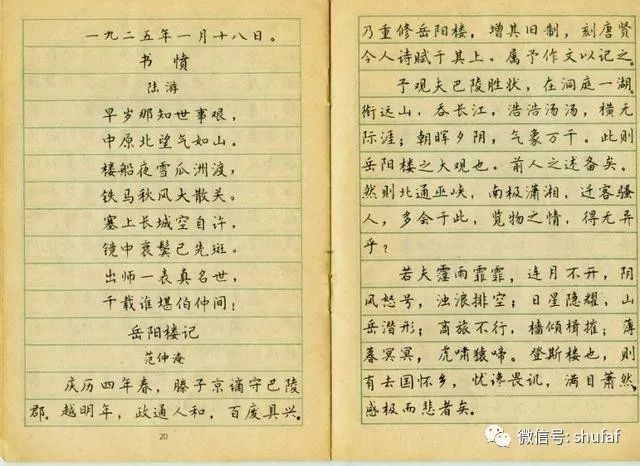 一九二五年一月十八日。
书 愤
陆游
早岁那知世事艰，
中原北望气如山。
楼船夜雪瓜洲渡，
铁马秋风大散关。
塞上长城空自许，
镜中衰鬓已先斑。
出师一表真名世，
千载谁堪伯仲间！
岳阳楼记
范仲淹
庆历四年春，滕子京谪守巴陵
郡。越明年，政通人和，百废具兴。
20
乃重修岳阳楼，增其旧制，刻唐贤
今人诗赋于其上。属予作文以记之。
予观夫巴陵胜状，在洞庭一湖。
衔远山，吞长江，浩浩汤汤，横无
际涯；朝晖夕阴，气象万千。此则
岳阳楼之大观也。前人之述备矣。
然则北通巫峡，南极潇湘，迁客骚
人，多会于此，览物之情，得无异
乎？
若夫霪雨霏霏，连月不开，阴
风怒号，浊浪排空；日星隐耀，山
岳潜形；商旅不行，樯倾楫摧；薄
暮冥冥，虎啸猿啼。登斯楼也，则
有去国怀乡，忧谗畏讥，满目萧然，
感极而悲者矣。
微信号: shufaf